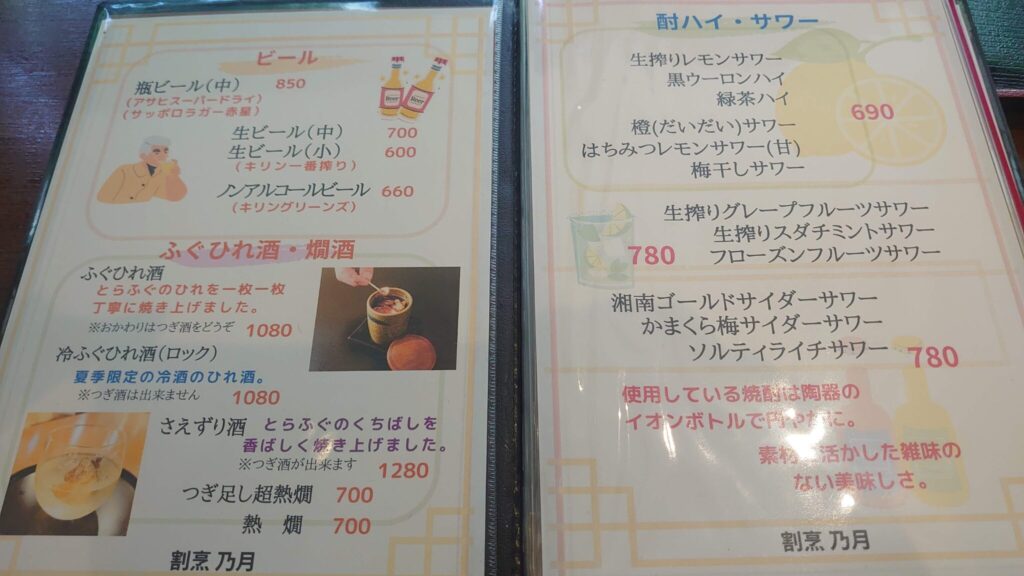 ビール
瓶ビール(中) 850
(アサヒスーパードライ)
(サッポロラガー赤星)
生ビール(中) 700
生ビール(小) 600
(キリン一番搾り)
ノンアルコールビール 660
(キリングリーンズ)
ふぐひれ酒・燗酒
ふぐひれ酒
とらふぐのひれを一枚一枚
丁寧に焼き上げました。
※おかわりはつぎ酒をどうぞ 1080
冷ふぐひれ酒(ロック)
夏季限定の冷酒のひれ酒。
※つぎ酒は出来ません 1080
さえずり酒 とらふぐのくちばしを
香ばしく焼き上げました。
※つぎ酒が出来ます 1280
つぎ足し超熱燗 700
熱 燗 700
割烹 乃月
酎ハイ・サワー
生搾りレモンサワー
黒ウーロンハイ
緑茶ハイ
690
橙(だいだい)サワー
はちみつレモンサワー(甘)
梅干しサワー
生搾りグレープフルーツサワー
生搾りスダチミントサワー
780 フローズンフルーツサワー
湘南ゴールドサイダーサワー
かまくら梅サイダーサワー
ソルティライチサワー 780
使用している焼酎は陶器の
イオンボトルで円やかに。
素材を活かした雑味の
ない美味しさ。
割烹 乃月